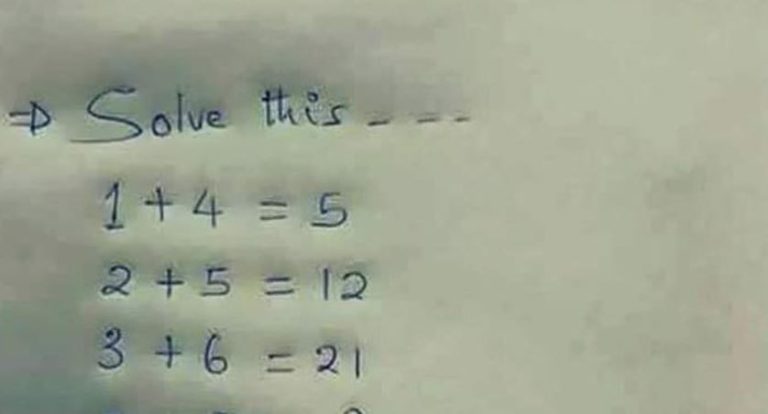 ⇒ Solve this - - -
1 + 4 = 5
2 + 5 = 12
3 + 6 = 21